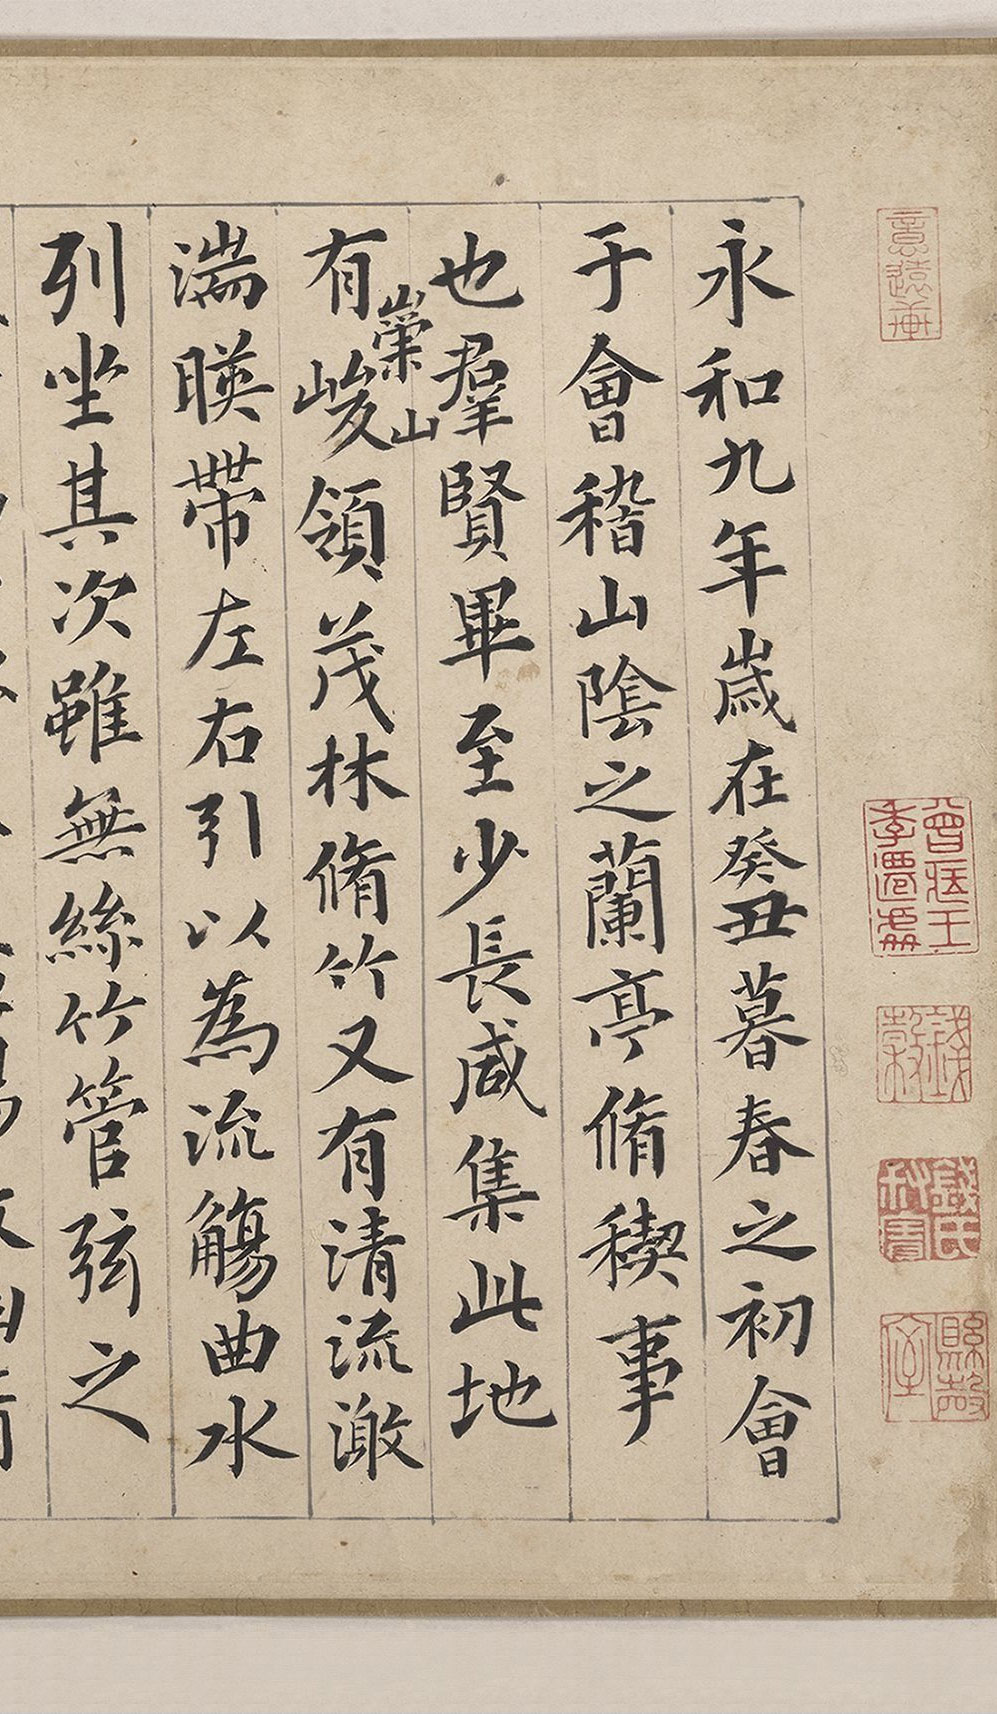 永和九年歲在癸丑暮春之初會
于會稽山陰之蘭亭脩稧事
也羣賢畢至少長咸集此地
崇山
有峻領茂林脩竹又有清流激
湍暎帶左右引以為流觴曲水
列坐其次雖無絲竹管弦之